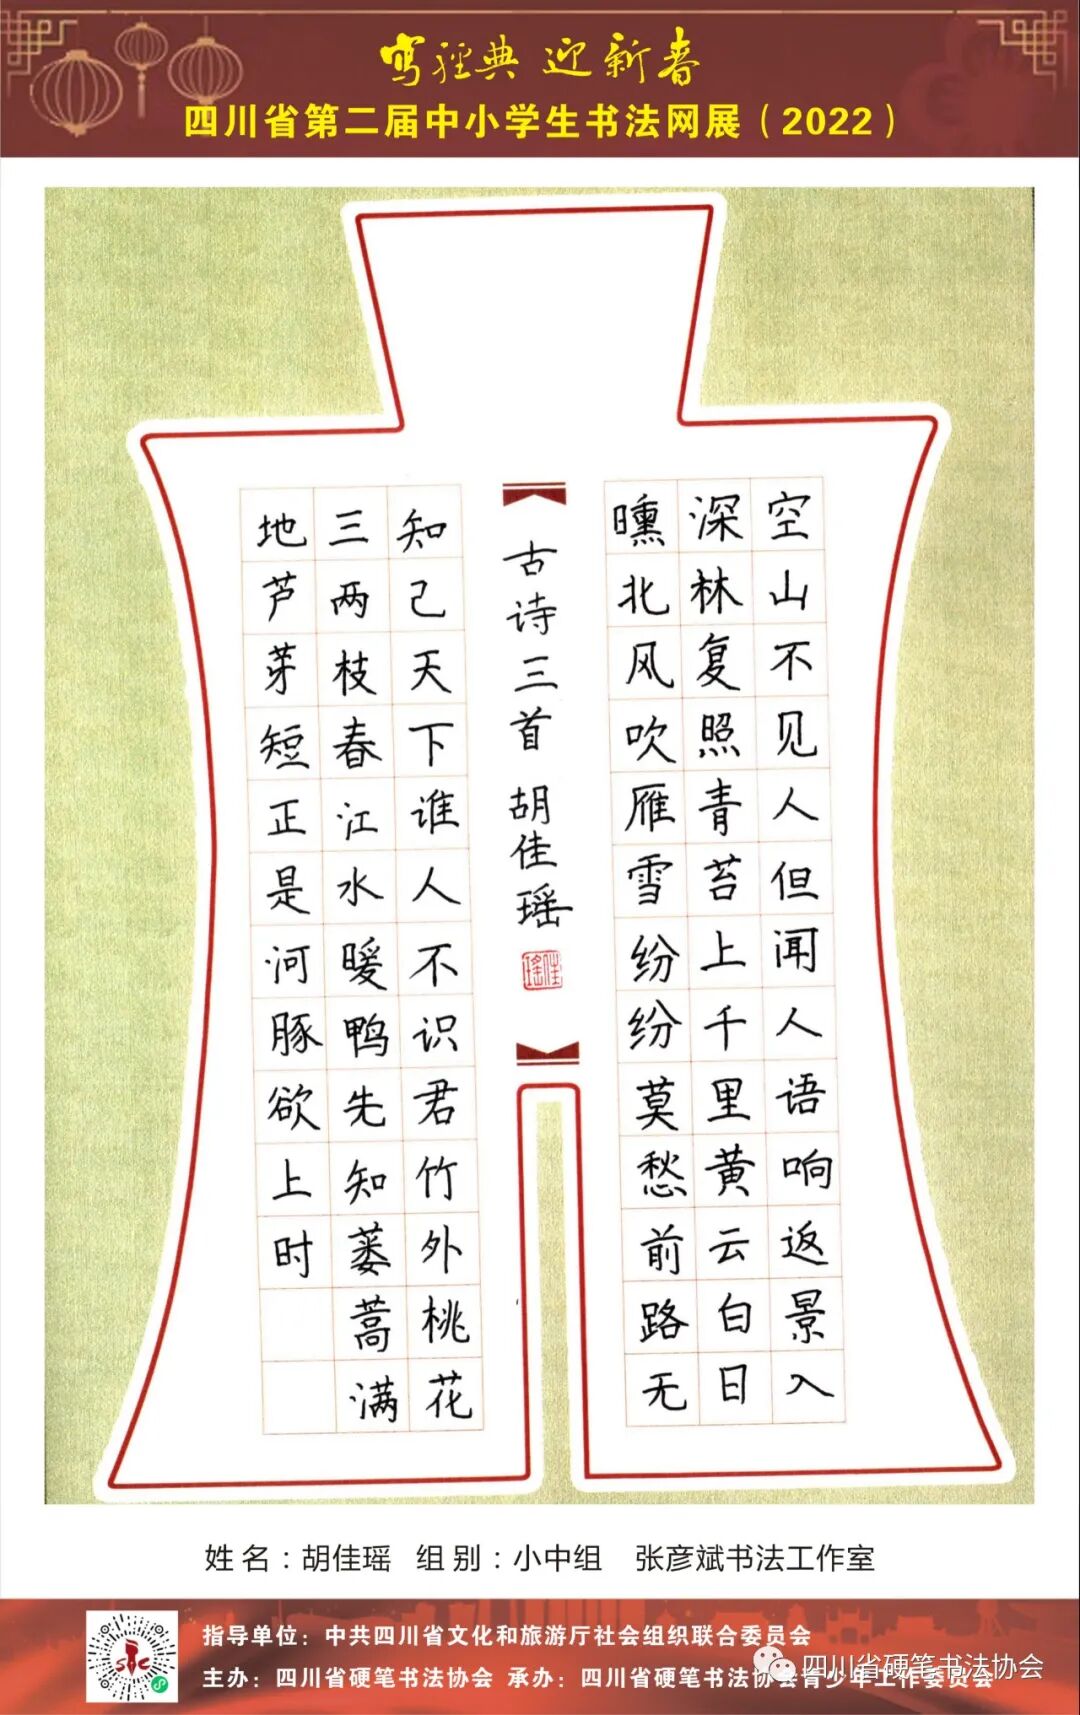 写经典 迎新春
四川省第二届中小学生书法网展（2022）
空山不见人但闻人语响返景入
深林复照青苔上千里黄云白日
曛北风吹雁雪纷纷莫愁前路无
古诗三首 胡佳瑶
佳瑶
知己天下谁人不识君竹外桃花
三两枝春江水暖鸭先知蒌蒿满
地芦芽短正是河豚欲上时
姓名：胡佳瑶 组别：小中组 张彦斌书法工作室
指导单位：中共四川省文化和旅游厅社会组织联合委员会
主办：四川省硬笔书法协会 承办：四川省硬笔书法协会青少年工作委员会
四川省硬笔书法协会